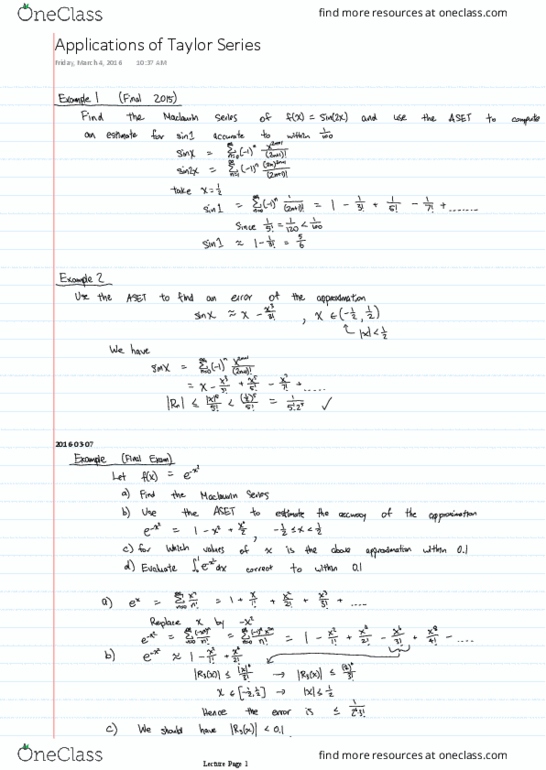 OneClass
find more resources at oneclass.com
Applications of Taylor Series
Friday, March 4, 2016 10:37 AM
Example 1 (Final 2015)
Find the Maclaurin Series of f(x) = Sin(2x) and use the ASET to compute
an estimate for sin1 accurate to within 1/100
sinx = ∑(-1)ⁿ x²ⁿ⁺¹/(2n+1)!
sin2x = ∑(-1)ⁿ (2x)²ⁿ⁺¹/(2n+1)!
take x = 1/2
sin1 = ∑(-1)ⁿ 1/(2n+1)! = 1 - 1/3! + 1/5! - 1/7! + ........
Since 1/5! = 1/120 < 1/100
sin1 ≈ 1 - 1/3! = 5/6
Example 2
Use the ASET to find an error of the approximation
sinx ≈ x - x³/3! , x ∈ (-1/2, 1/2)
|x| < 1/2
We have
sinx = ∑(-1)ⁿ x²ⁿ⁺¹/(2n+1)!
= x - x³/3! + x⁵/5! - x⁷/7! + ......
|Rₙ| ≤ |x|⁵/5! < (1/2)⁵/5! = 1/5!2⁵ ✓
2016-03-07
Example (Final Exam)
Let f(x) = e^-x²
a) Find the Maclaurin Series
b) Use the ASET to estimate the accuracy of the approximation
e^-x² = 1 - x² + x⁴/2 , -1/2 ≤ x < 1/2
c) for Which values of x is the above approximation within 0.1
d) Evaluate ∫e^-x² dx correct to within 0.1
a) eˣ = ∑ xⁿ/n! = 1 + x/1! + x²/2! + x³/3! + ....
Replace x by -x²
e^-x² = ∑ (-x²)ⁿ/n! = ∑ (-1)ⁿx²ⁿ/n! = 1 - x²/1! + x⁴/2! - x⁶/3! + x⁸/4! - ....
b) e^-x² ≈ 1 - x²/1! + x⁴/2!
|R₃(x)| ≤ |x|⁶/3! → |R₃(x)| ≤ (1/2)⁶/3!
x ∈ [-1/2, 1/2] → |x| ≤ 1/2
Hence the error is ≤ 1/2⁶3!
c) We should have |R₃(x)| < 0.1
OneClass
Lecture Page 1
find more resources at oneclass.com